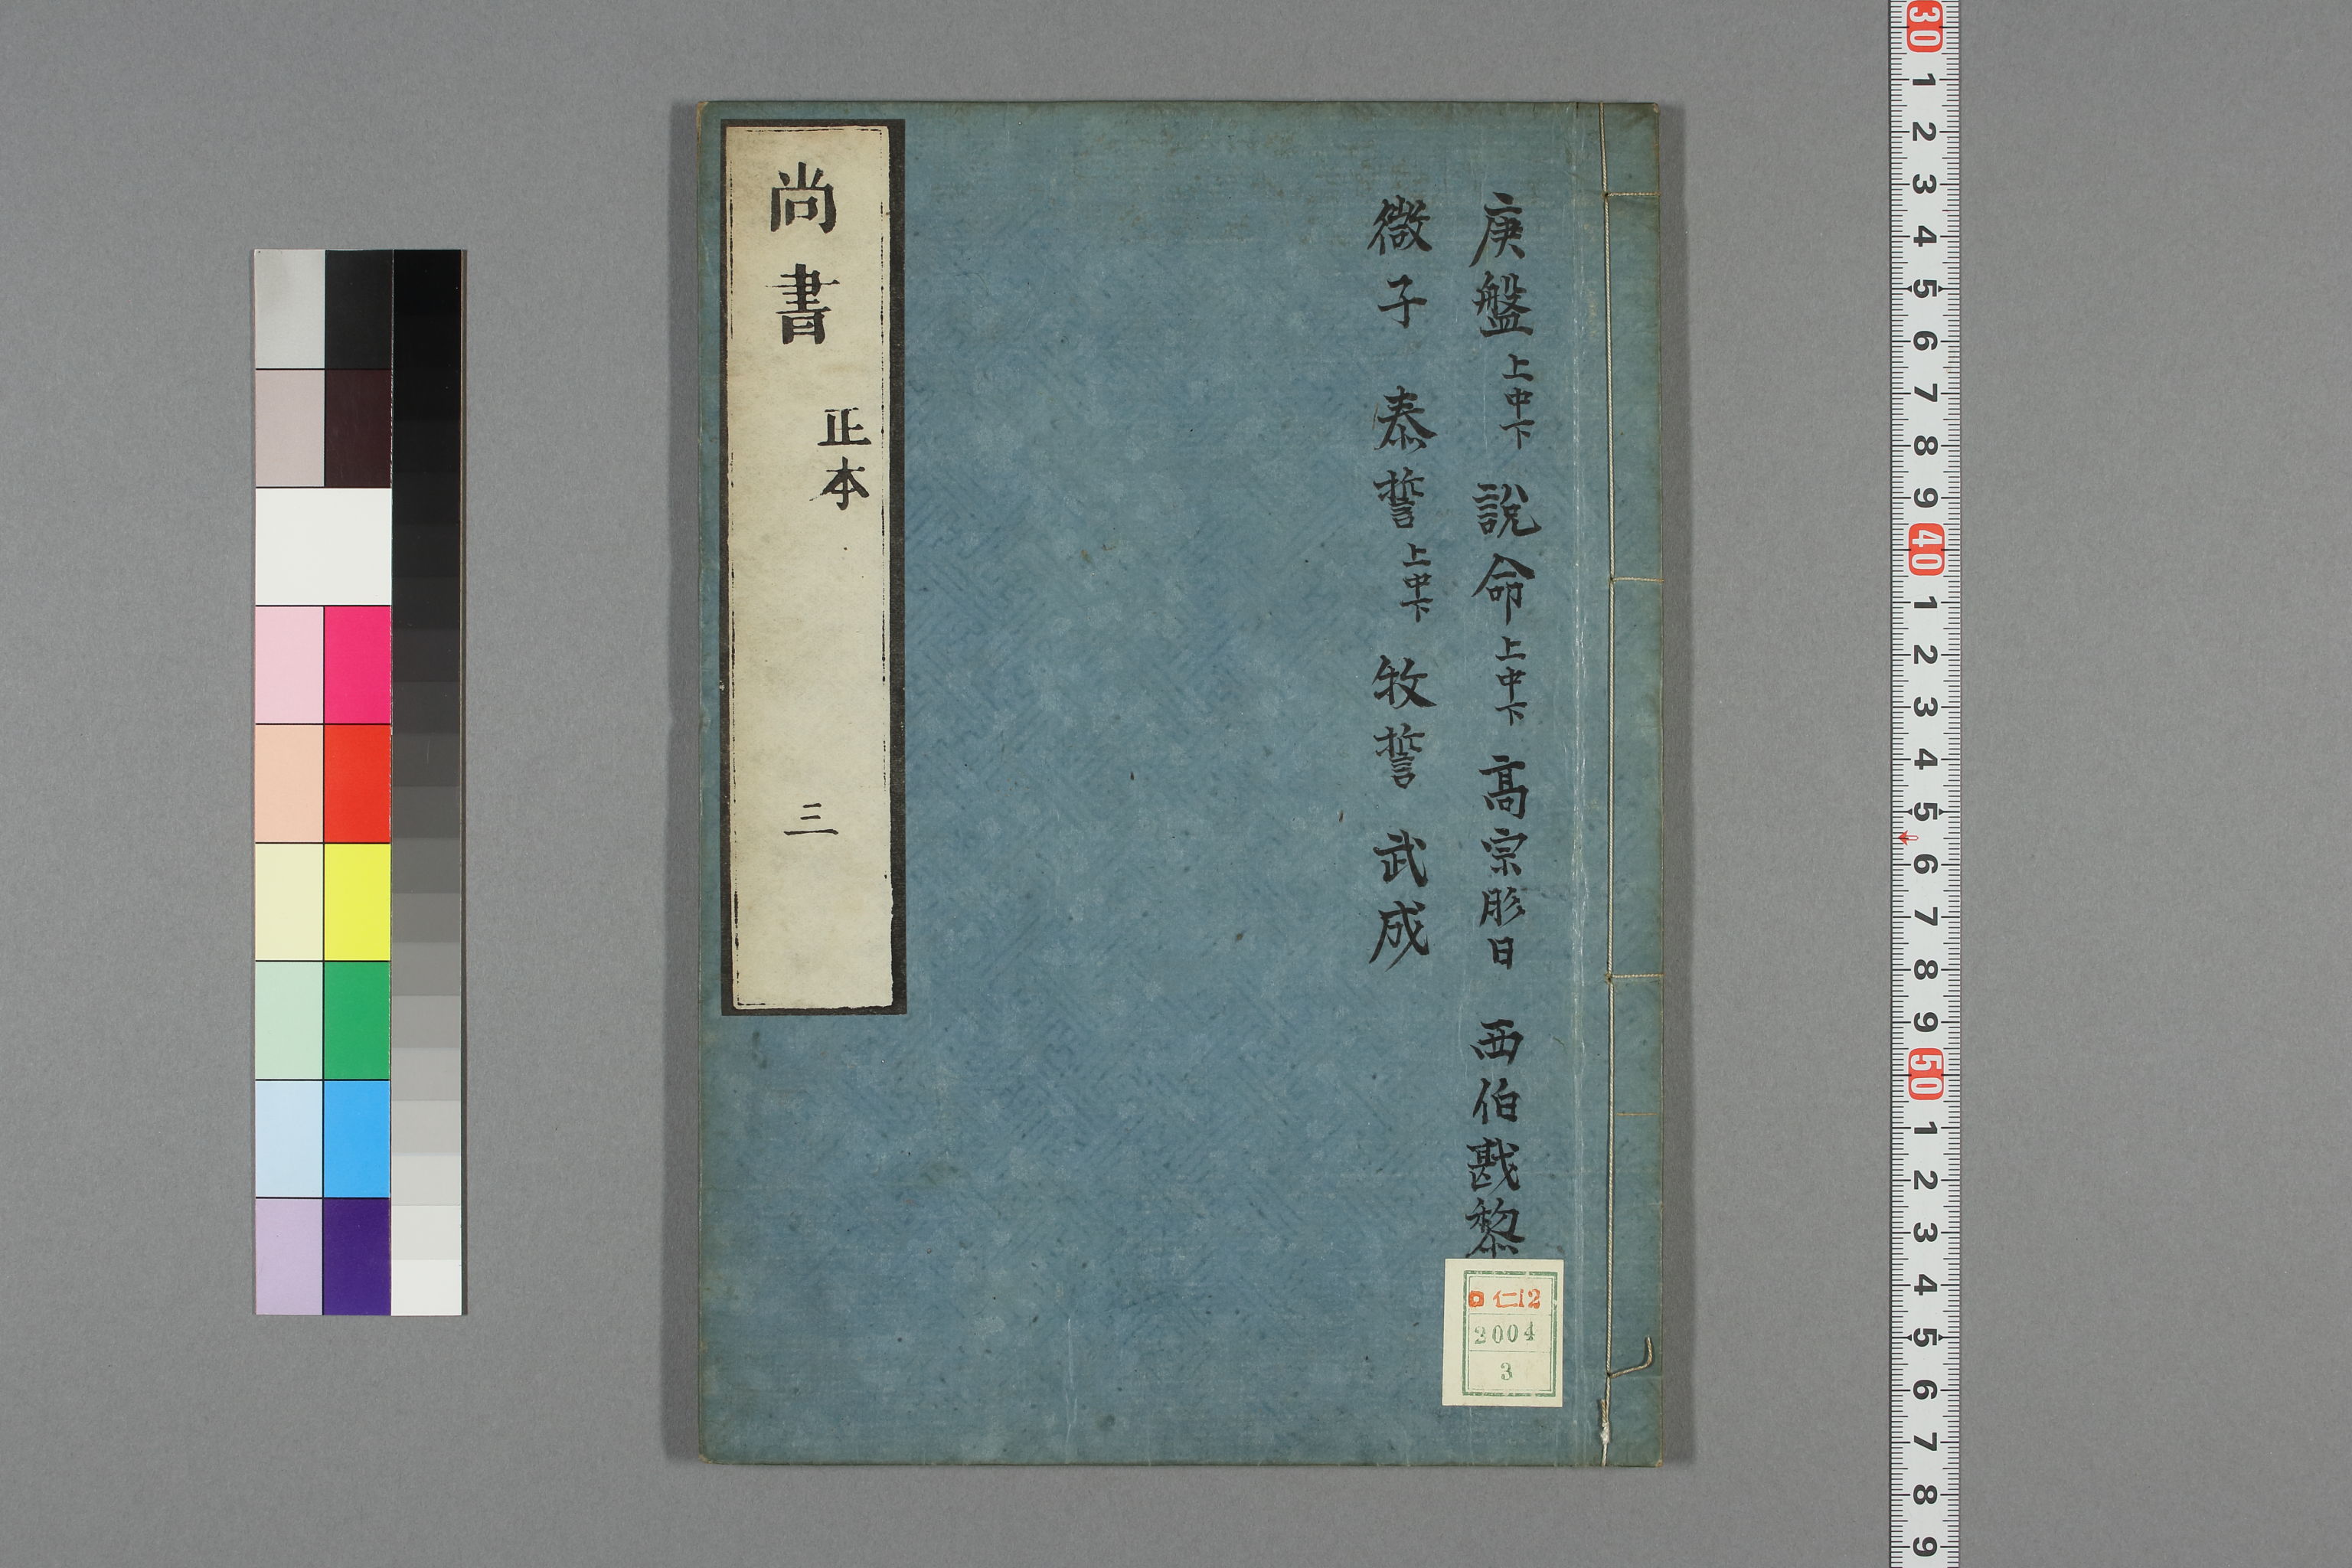 庚盤上中下 說命上中下 高宗肜日 西伯戡黎
微子 泰誓上中下 牧誓 武成
尚書 正本 三
口 仁12
2004
3
30 1 2 3 4 5 6 7 8 9 40 1 2 3 4 5 6 7 8 9 50 1 2 3 4 5 6 7 8 9